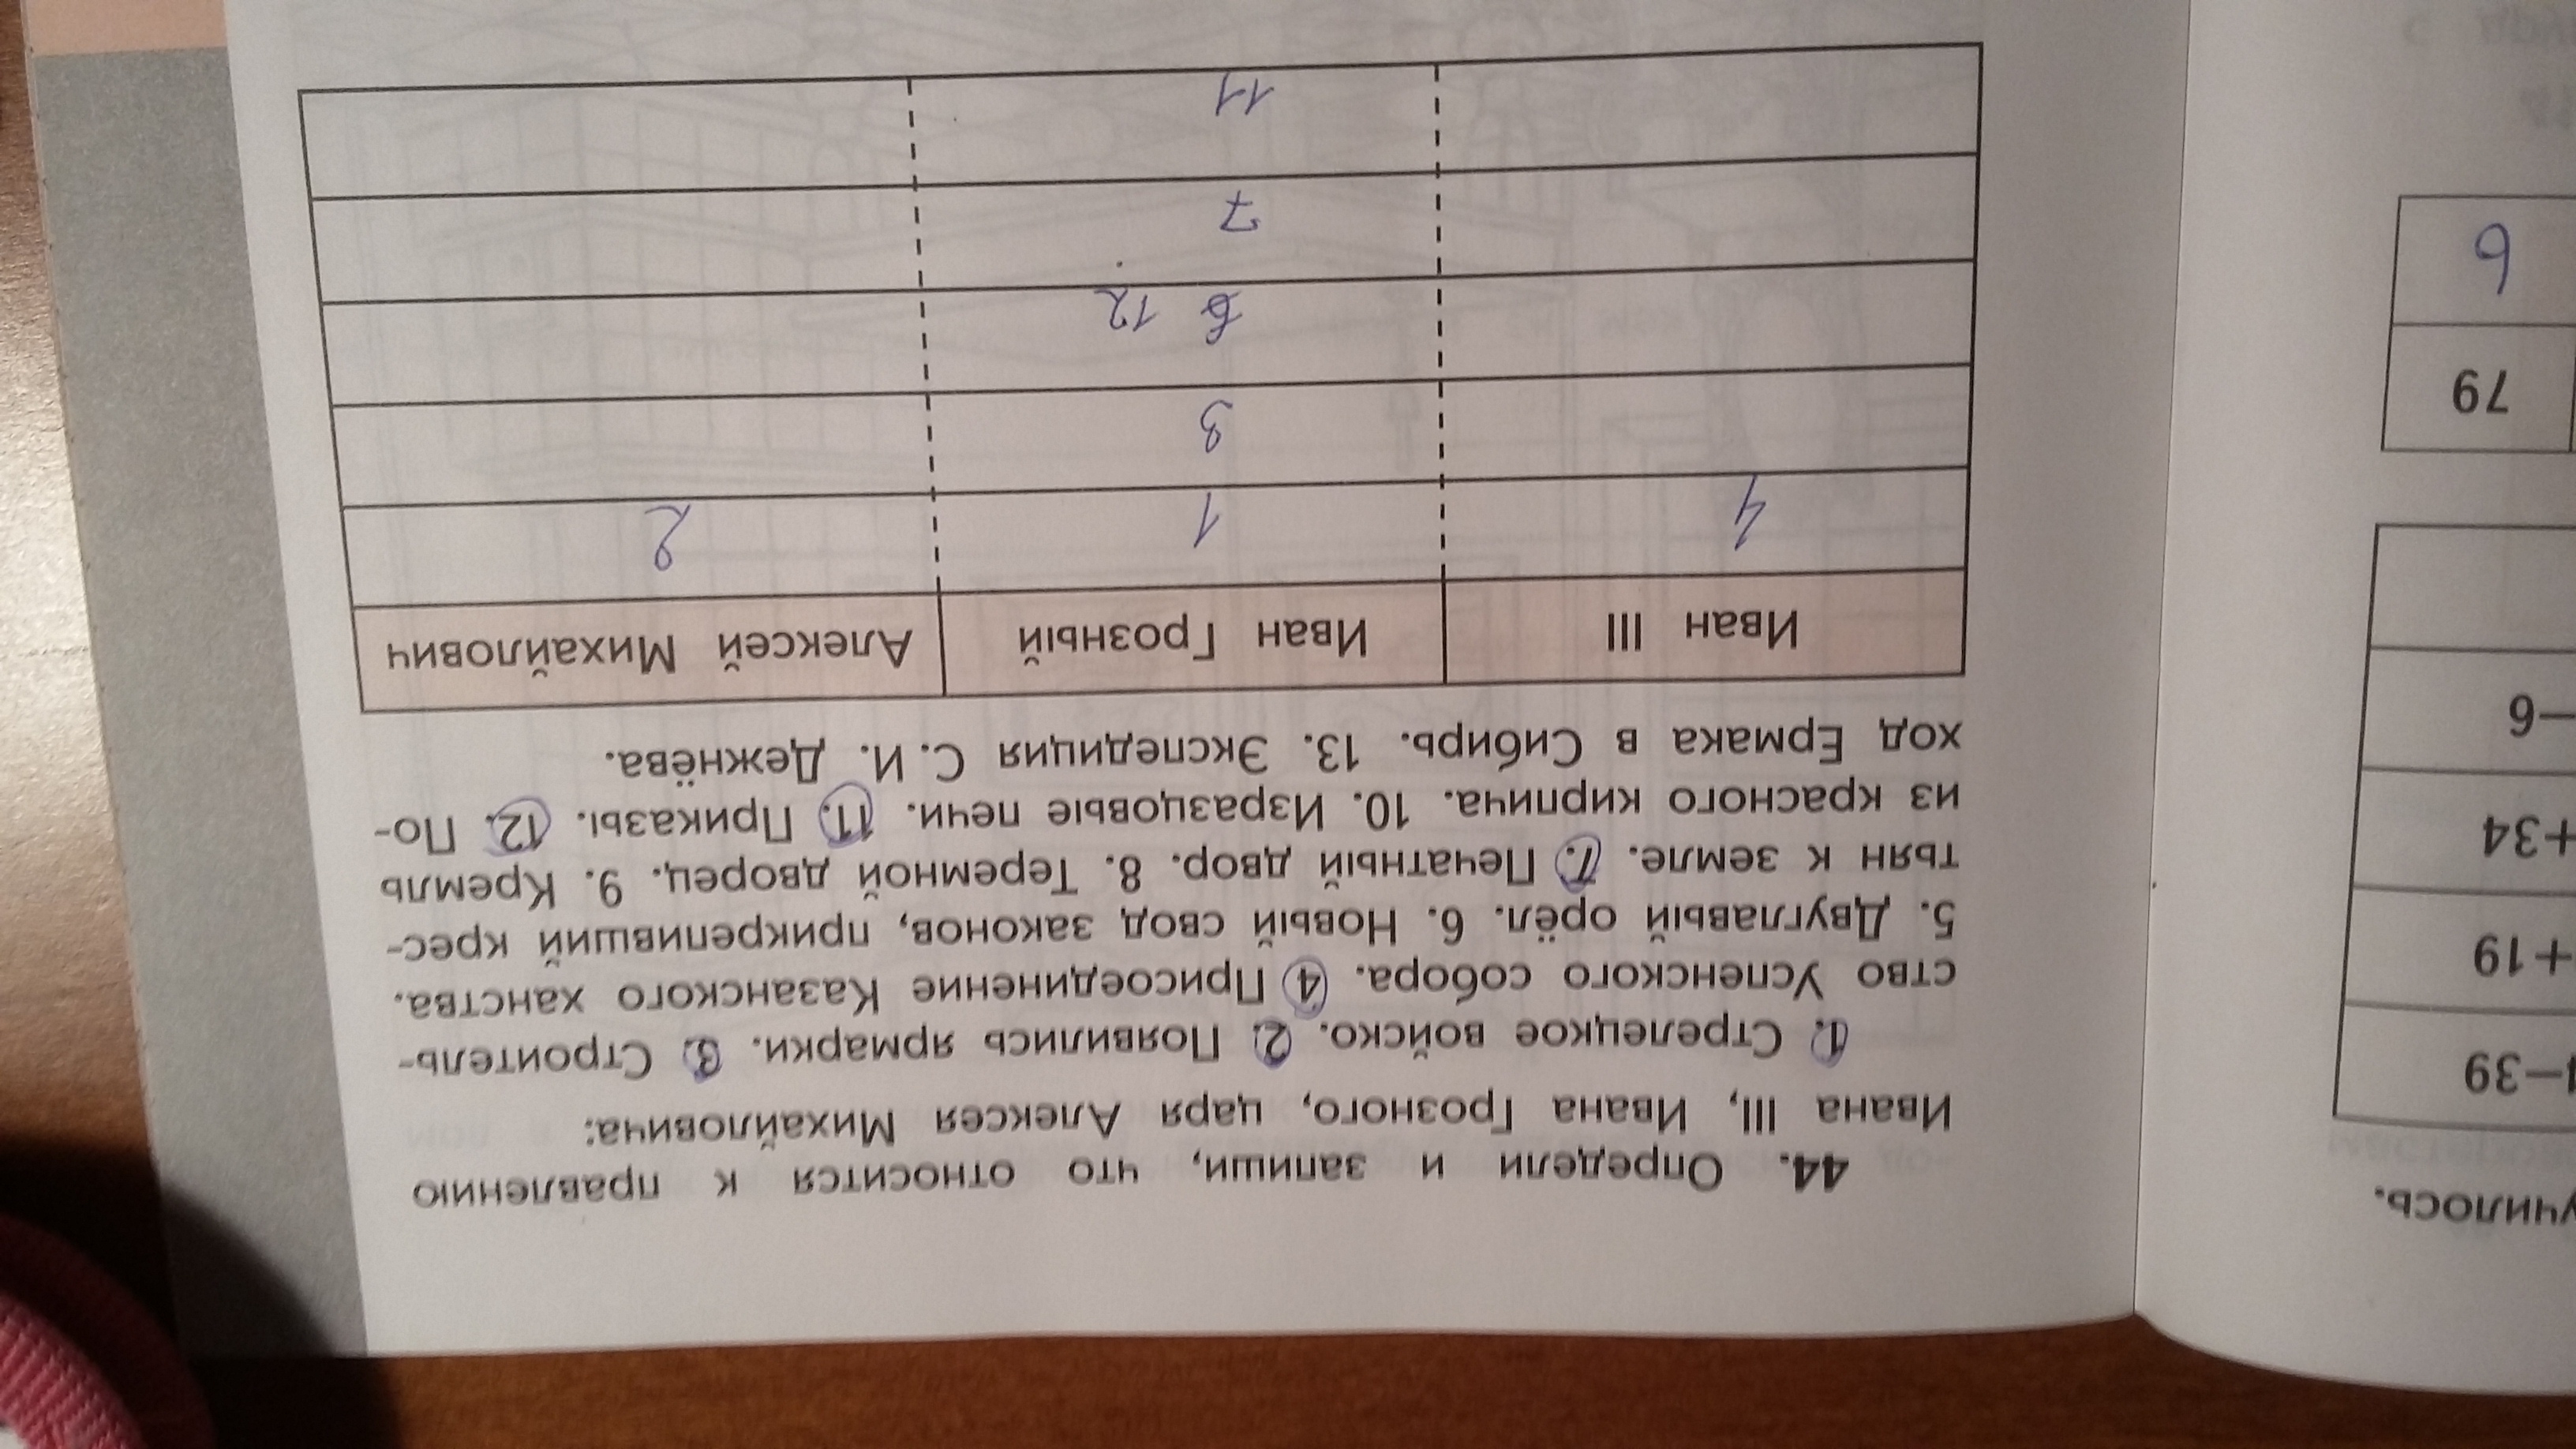 44. Определи и запиши, что относится к правлению
Ивана III, Ивана Грозного, царя Алексея Михайловича:
1. Стрелецкое войско. 2. Появились ярмарки. 3. Строитель-
ство Успенского собора. 4. Присоединение Казанского ханства.
5. Двуглавый орёл. 6. Новый свод законов, прикрепивший крес-
тьян к земле. 7. Печатный двор. 8. Теремной дворец. 9. Кремль
из красного кирпича. 10. Изразцовые печи. 11. Приказы. 12. По-
ход Ермака в Сибирь. 13. Экспедиция С. И. Дежнёва.
Иван III Иван Грозный Алексей Михайлович
4 1 2
3
12
7
11
училось.
–39
+19
+34
–6
79
6